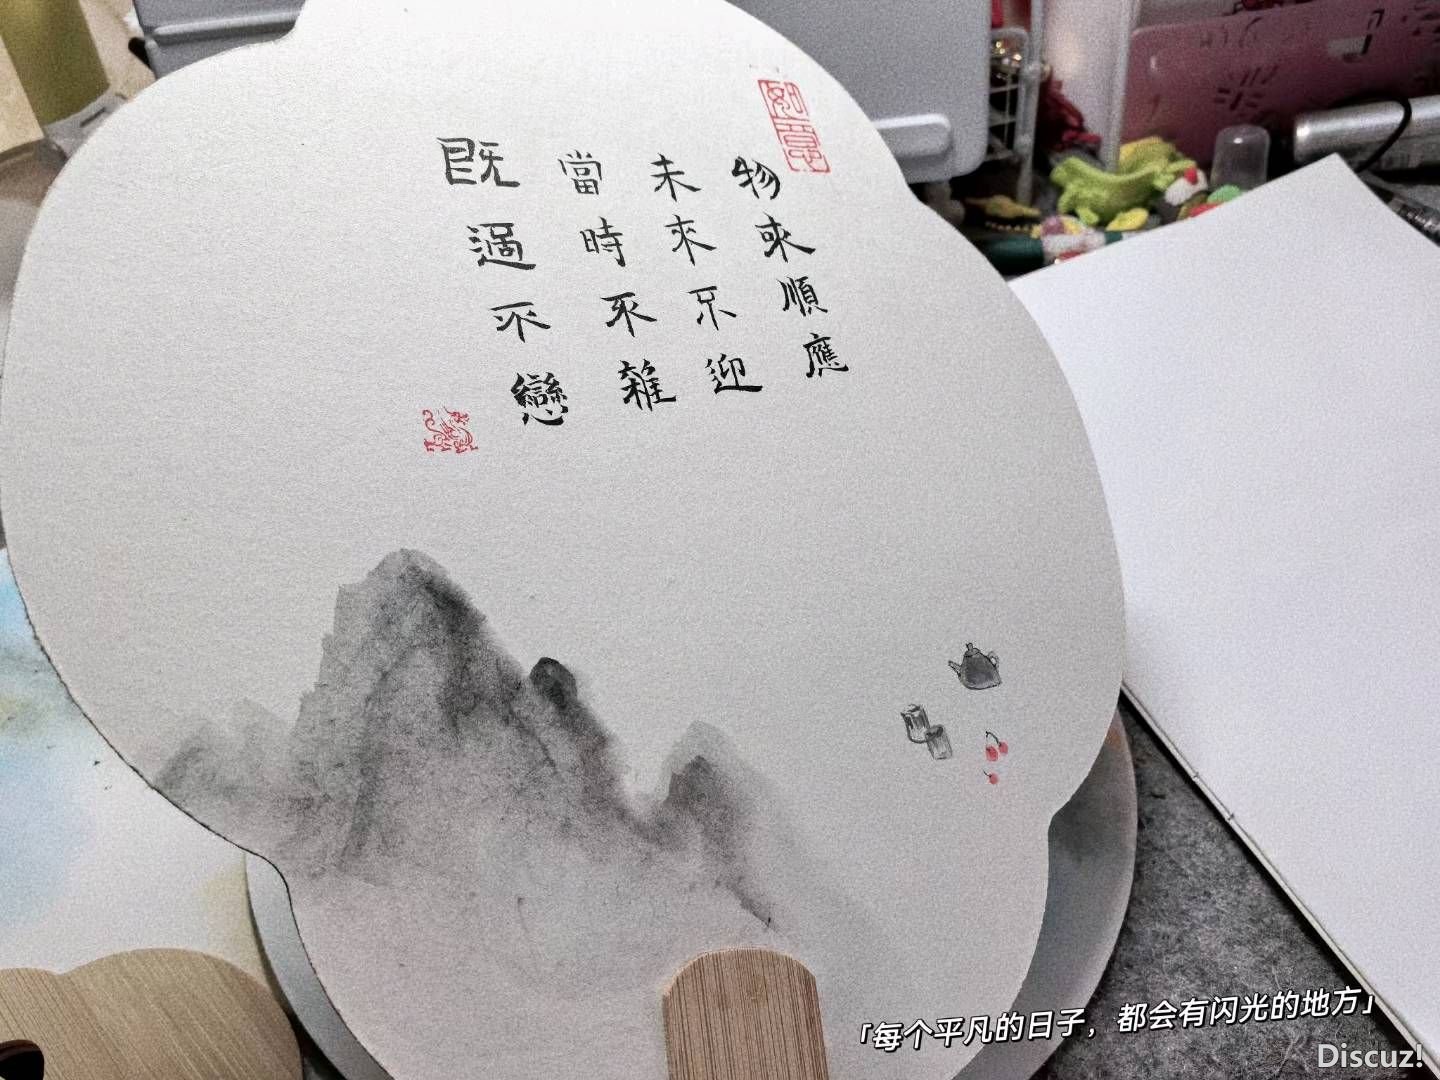 如意
物來順應
未來不迎
當時不雜
既過不戀
「每个平凡的日子，都会有闪光的地方」
Discuz!